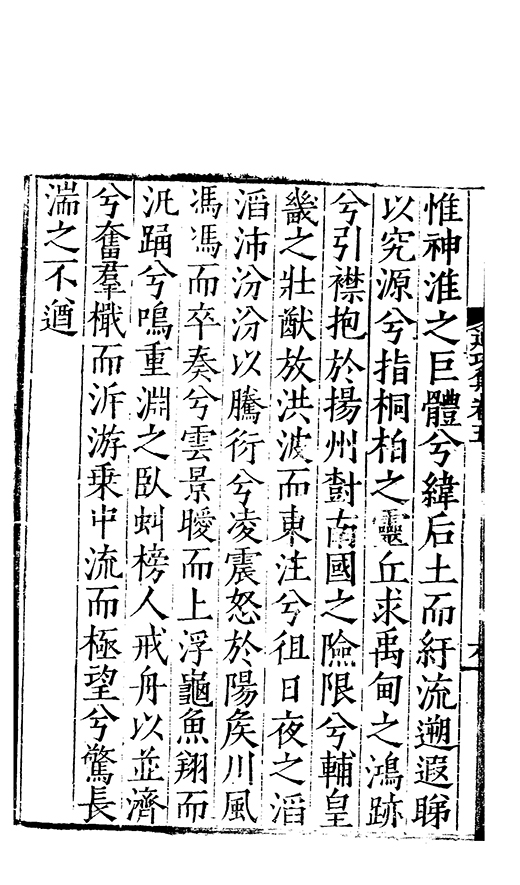 惟神淮之巨體兮緯后土而紆流遡遐睇
以究源兮指桐柏之靈丘求禹甸之鴻跡
兮引襟抱於揚州對南國之險限兮輔皇
畿之壯猷放洪波而東注兮徂日夜之滔
滔沛汾汾以騰衍兮凌震怒於陽矦川風
馮馮而卒奏兮雲景曖而上浮龜魚翔而
汎踊兮鳴重淵之臥虯榜人戒舟以並濟
兮奮羣檝而泝游乘中流而極望兮驚長
湍之不遒